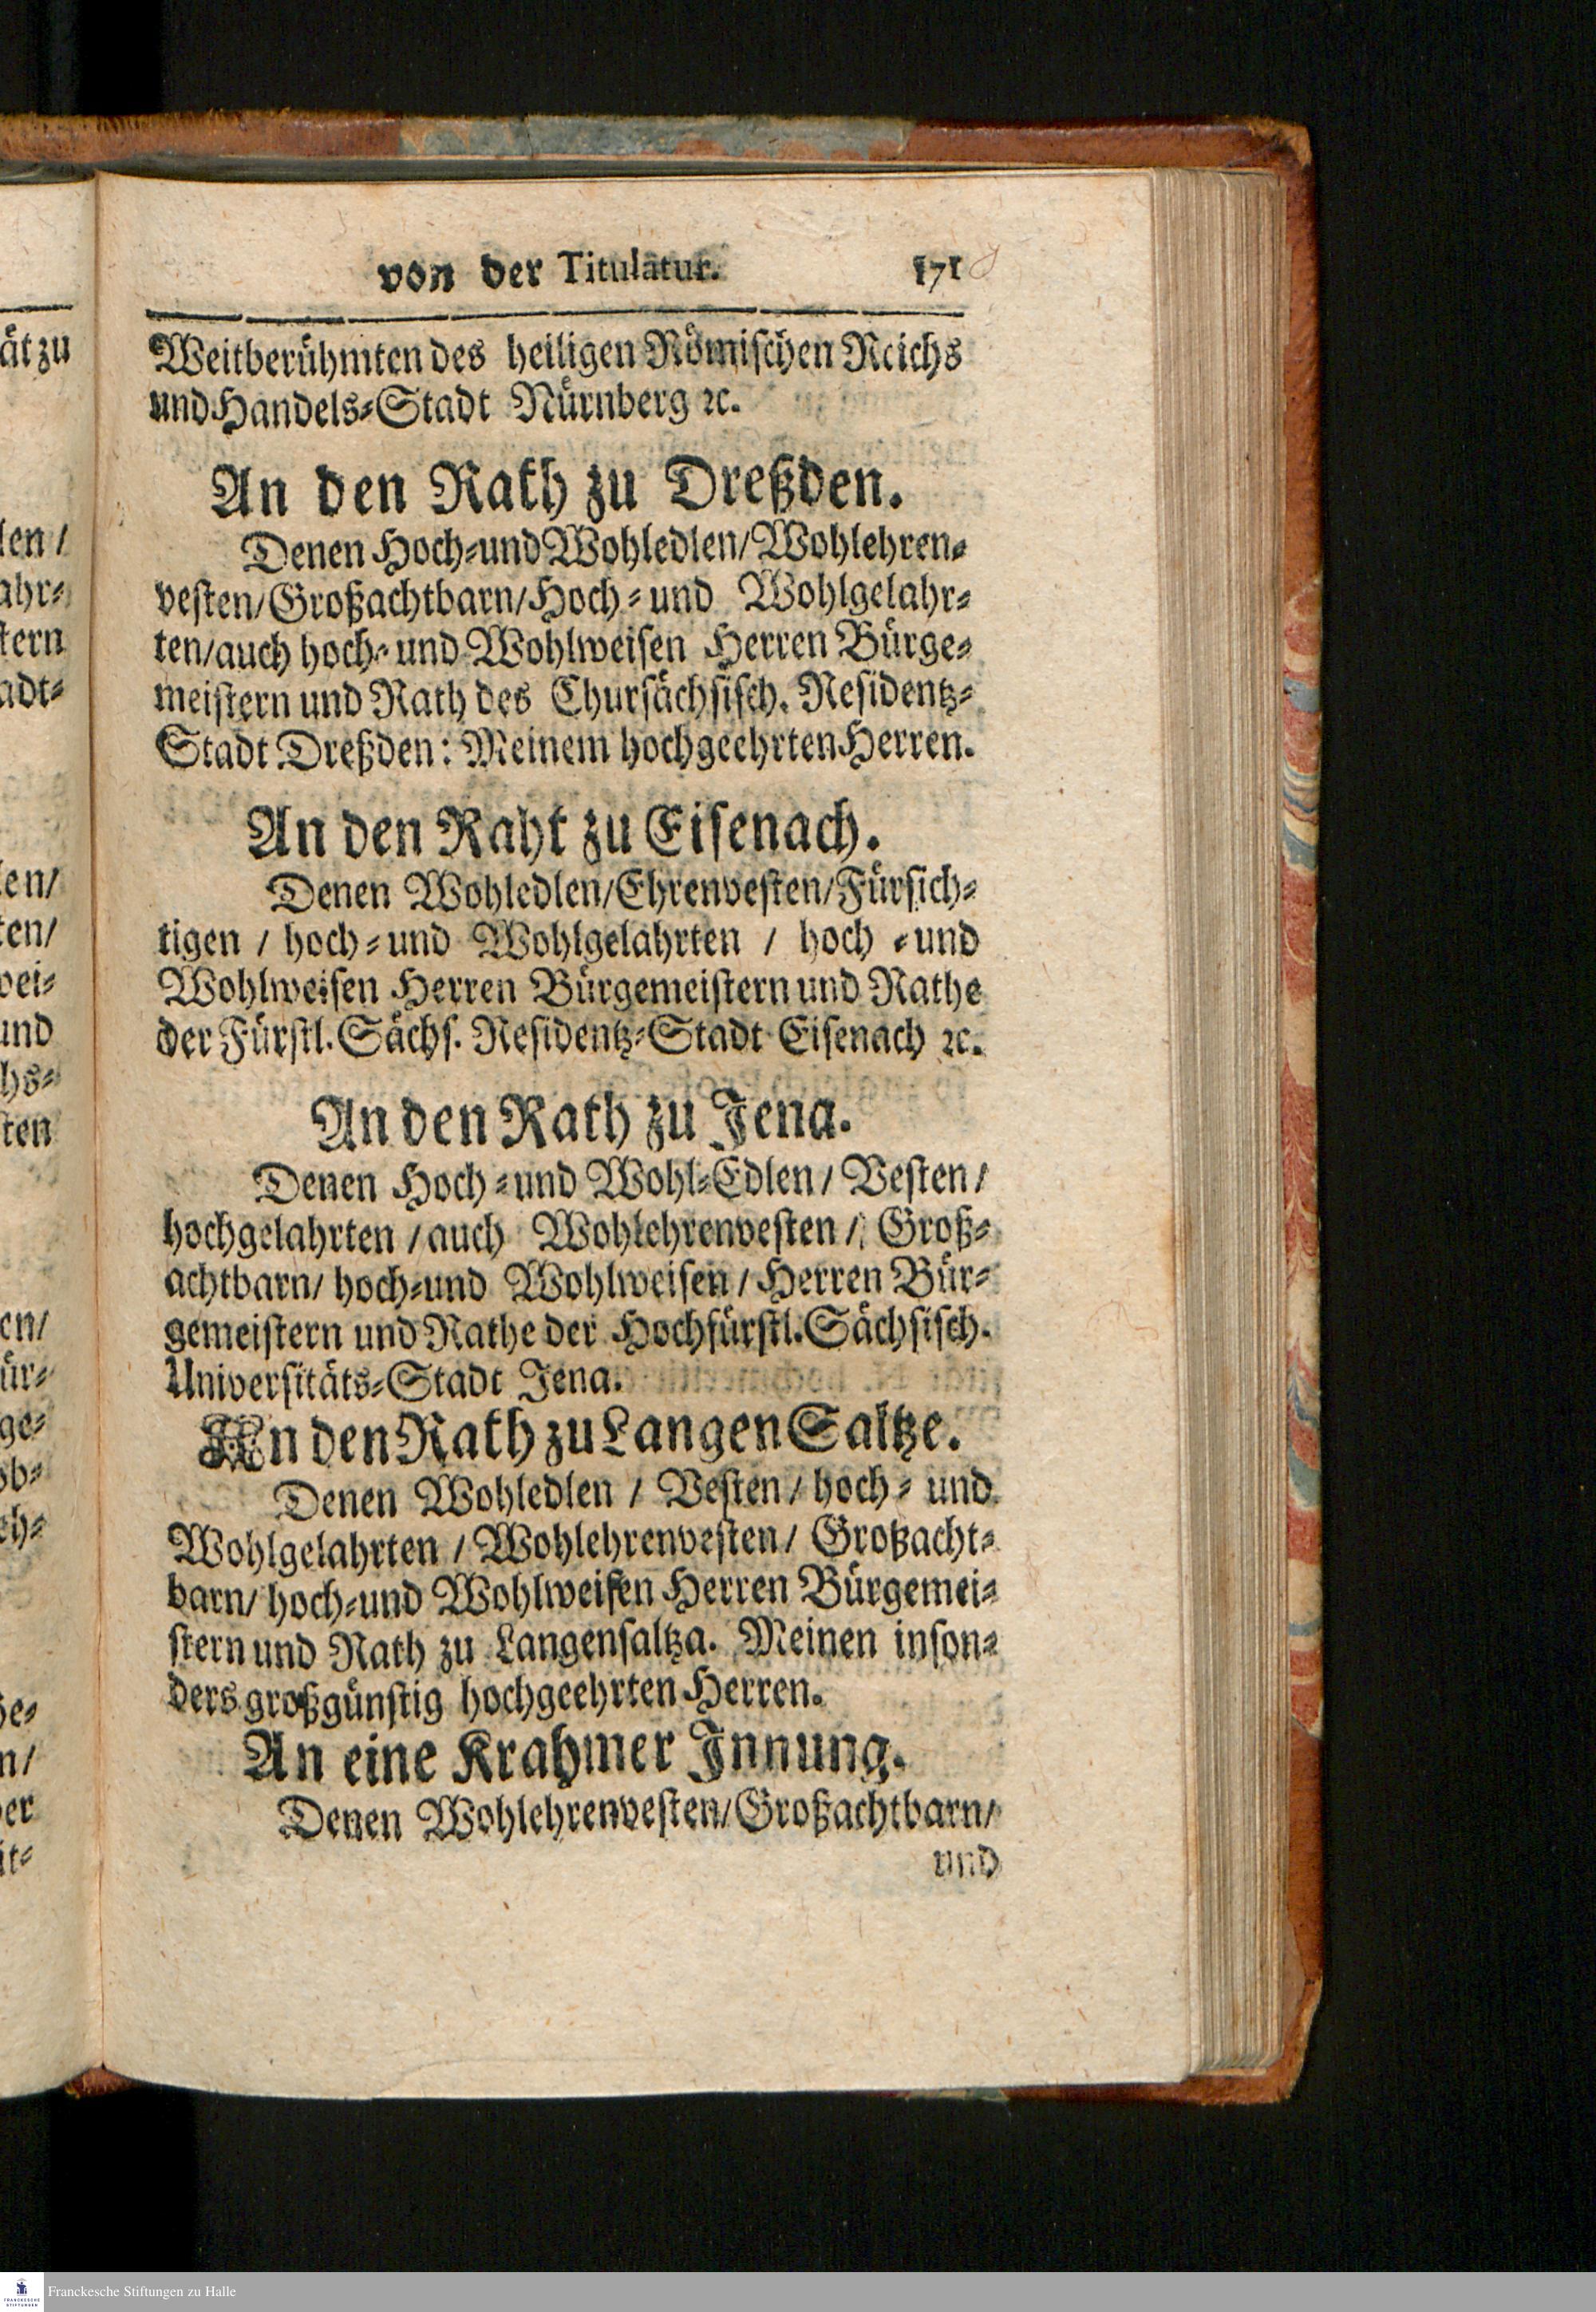 von der Titulatur. 171
Weitberühmten des heiligen Römischen Reichs
und Handels-Stadt Nürnberg ꝛc.
An den Rath zu Dreßden.
Denen Hoch-und Wohledlen/Wohlehren-
vesten/Großachtbarn/Hoch-und Wohlgelahr-
ten/auch hoch-und Wohlweisen Herren Bürge-
meistern und Rath des Chursächsisch. Residentz-
Stadt Dreßden: Meinem hochgeehrten Herren.
An den Raht zu Eisenach.
Denen Wohledlen/Ehrenvesten/Fürsich-
tigen / hoch-und Wohlgelahrten / hoch-und
Wohlweisen Herren Bürgemeistern und Rathe
der Fürstl. Sächs. Residentz-Stadt Eisenach ꝛc.
An den Rath zu Jena.
Denen Hoch-und Wohl-Edlen / Vesten /
hochgelahrten / auch Wohlehrenvesten / Groß-
achtbarn/ hoch-und Wohlweisen / Herren Bür-
gemeistern und Rathe der Hochfürstl. Sächsisch.
Universitäts-Stadt Jena.
An den Rath zu Langen Saltze.
Denen Wohledlen / Vesten / hoch-und
Wohlgelahrten / Wohlehrenvesten / Großacht-
barn/ hoch-und Wohlweisen Herren Bürgemei-
stern und Rath zu Langensaltza. Meinen inson-
ders großgünstig hochgeehrten Herren.
An eine Krahmer Innung.
Denen Wohlehrenvesten/Großachtbarn/
und
Franckesche Stiftungen zu Halle